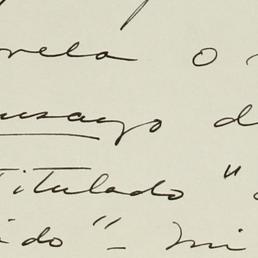 vela o
ensayo d
titulado "
ido" - mi